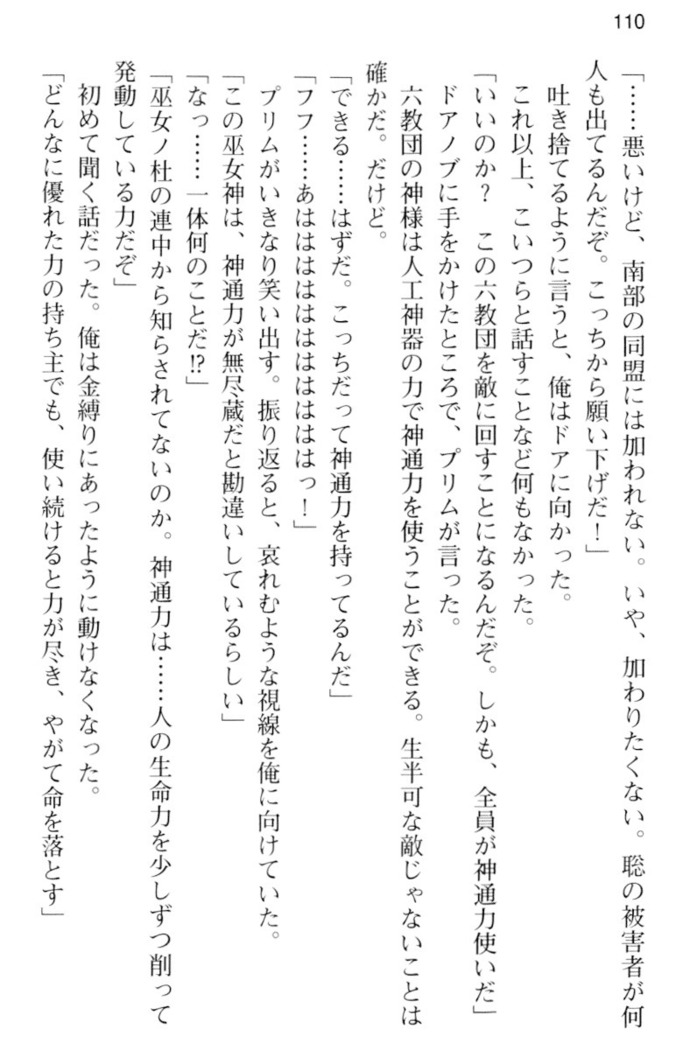 110
「……悪いけど、南部の同盟には加われない。いや、加わりたくない。聡の被害者が何
人も出てるんだぞ。こっちから願い下げだ！」
吐き捨てるように言うと、俺はドアに向かった。
これ以上、こいつらと話すことなど何もなかった。
「いいのか？　この六教団を敵に回すことになるんだぞ。しかも、全員が神通力使いだ」
ドアノブに手をかけたところで、プリムが言った。
六教団の神様は人工神器の力で神通力を使うことができる。生半可な敵じゃないことは
確かだ。だけど。
「できる……はずだ。こっちだって神通力を持ってるんだ」
「フフ……あはははははははははははっ！」
プリムがいきなり笑い出す。振り返ると、哀れむような視線を俺に向けていた。
「この巫女神は、神通力が無尽蔵だと勘違いしているらしい」
「なっ……一体何のことだ!?」
「巫女ノ杜の連中から知らされてないのか。神通力は……人の生命力を少しずつ削って
発動している力だぞ」
初めて聞く話だった。俺は金縛りにあったように動けなくなった。
「どんなに優れた力の持ち主でも、使い続けると力が尽き、やがて命を落とす」